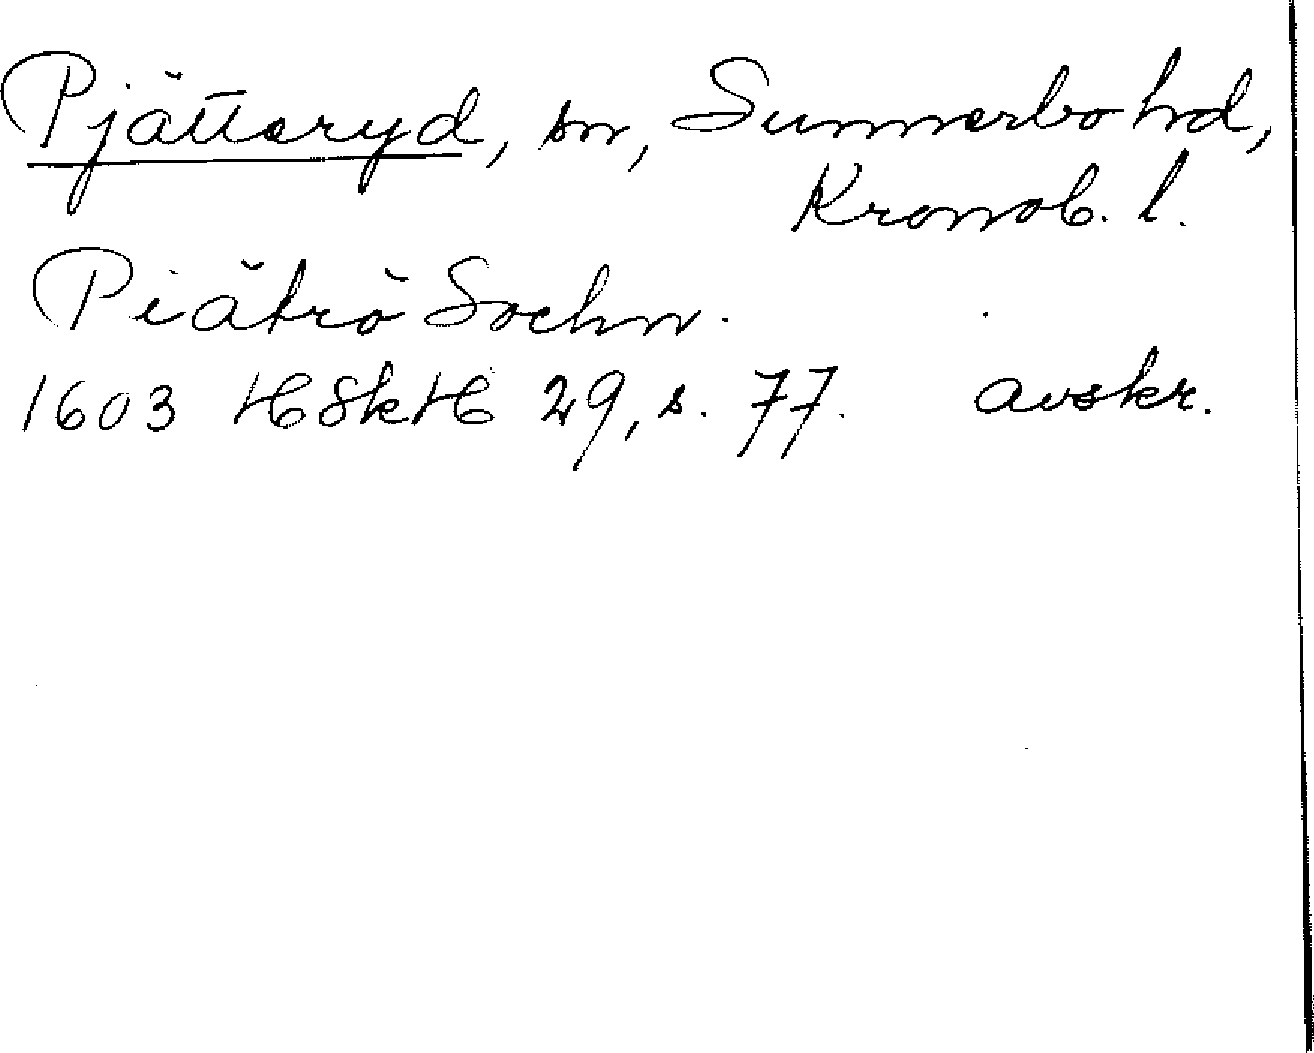 Pjätteryd, sn, Sunnerbo hd,
Kronob. l.
Piätrö Sochn.
1603 HSkH 29, s. 77. avskr.